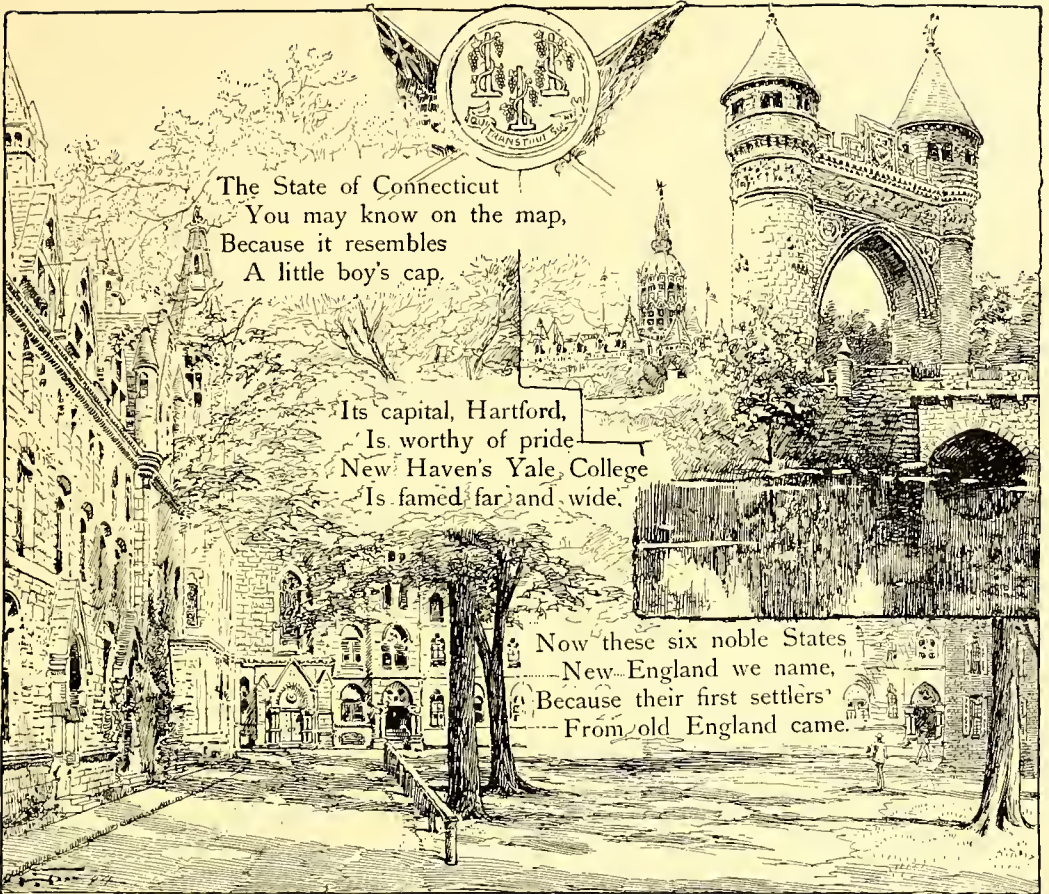 The State of Connecticut
You may know on the map,
Because it resembles
A little boy's cap.
Its capital, Hartford,
Is worthy of pride
New Haven's Yale College
Is famed far and wide.
Now these six noble States
New England we name,
Because their first settlers
From old England came.